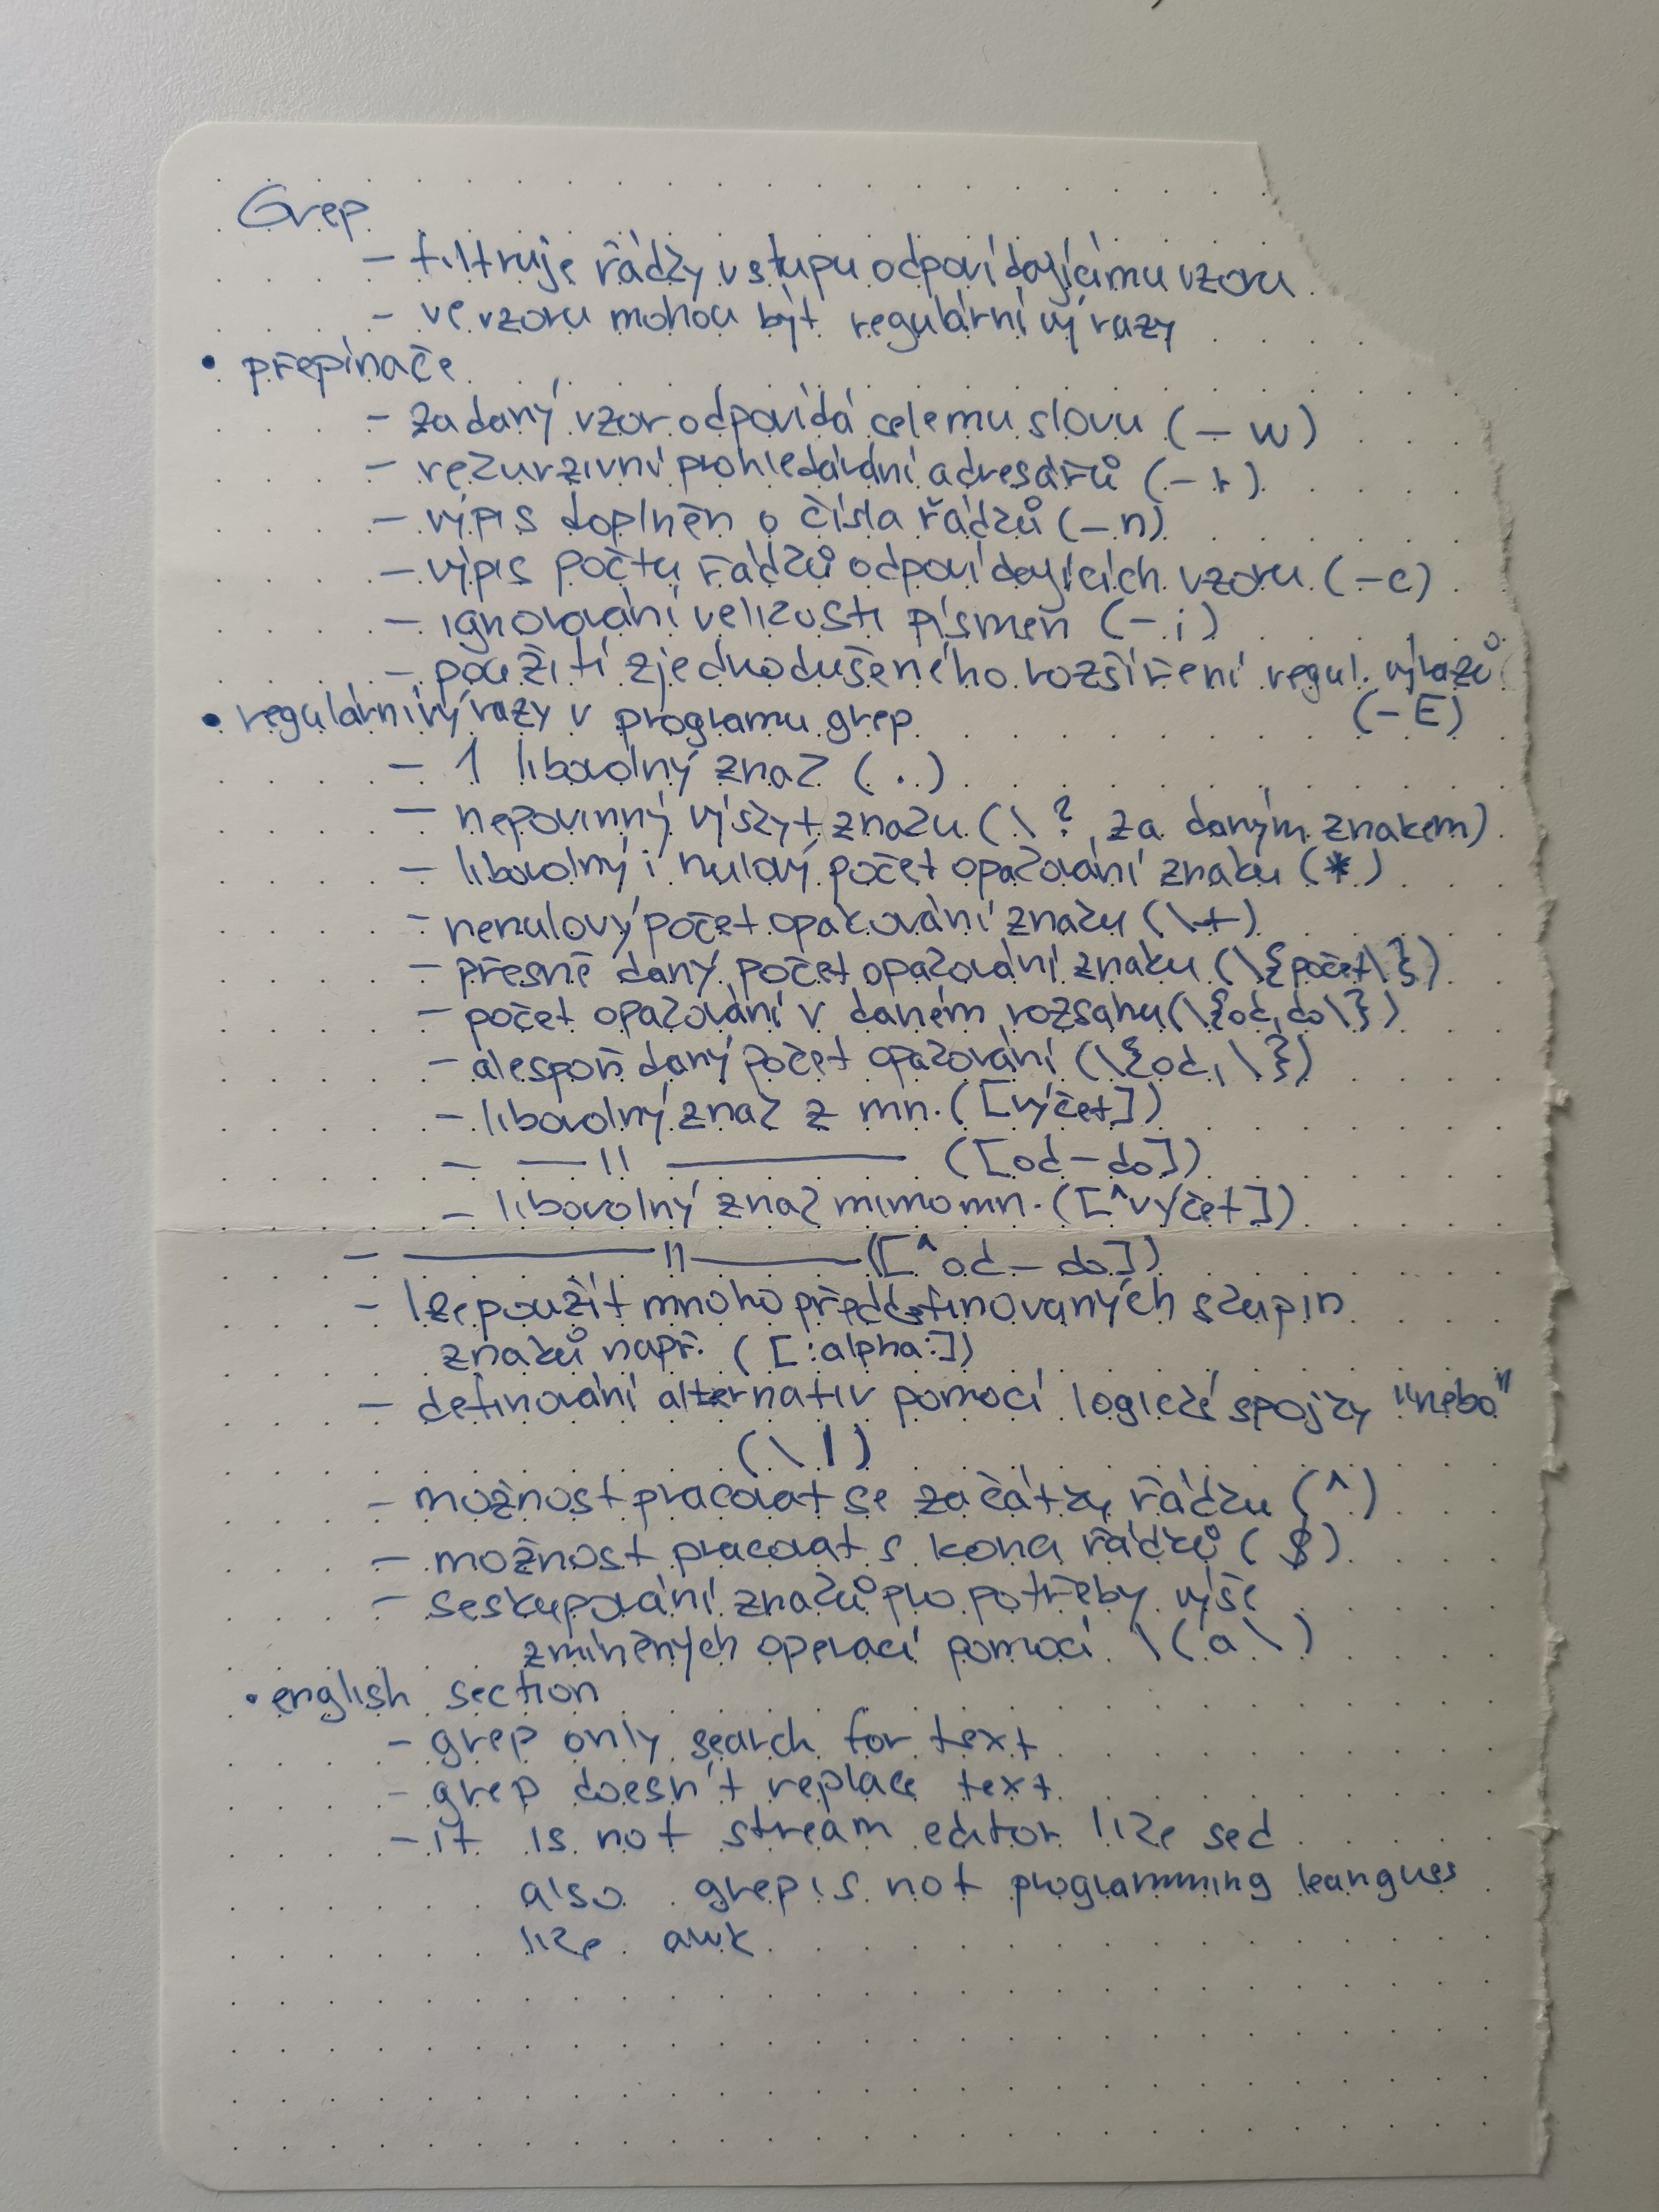 Grep
- filtruje řádky vstupu odpovídajícímu vzoru
- ve vzoru mohou být regulární výrazy
• přepínače
- zadaný vzor odpovídá celemu slovu (-w)
- rekurzivní prohledávání adresářů (-r)
- výpis doplněn o čísla řádků (-n)
- výpis počtu řádků odpovídajících vzoru (-c)
- ignorování velikosti písmen (-i)
- použití zjednodušeného rozšíření regul. výrazů
(-E)
• regulární výrazy v programu grep
- 1 libovolný znak (.)
- nepovinný výskyt znaku (\? za daným znakem)
- libovolný i nulový počet opakování znaku (*)
- nenulový počet opakování znaku (\+)
- přesně daný počet opakování znaku (\{počet\})
- počet opakování v daném rozsahu (\{od,do\})
- alespoň daný počet opakování (\{od,\})
- libovolný znak z mn. ([výčet])
- —— !! —— ([od-do])
- libovolný znak mimo mn. ([^výčet])
- —— !! —— ([^od-do])
- lze použít mnoho předdefinovaných skupin
znaků např. ([:alpha:])
- definování alternativ pomocí logické spojky "nebo"
(\|)
- možnost pracovat se začátky řádku (^)
- možnost pracovat s konci řádků ($)
- seskupování znaků pro potřeby výše
zmíněných operací pomocí \(a\)
• english section
- grep only search for text
- grep doesn't replace text
- it is not stream editor like sed
also grep is not programming leanguss
like awk